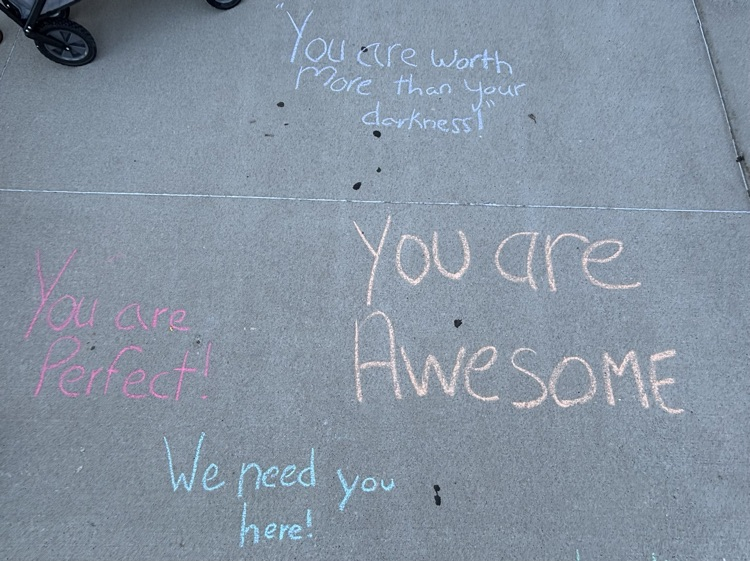 "You are worth
More than your
darkness!"
You are
Awesome
You are
Perfect!
We need you
here!